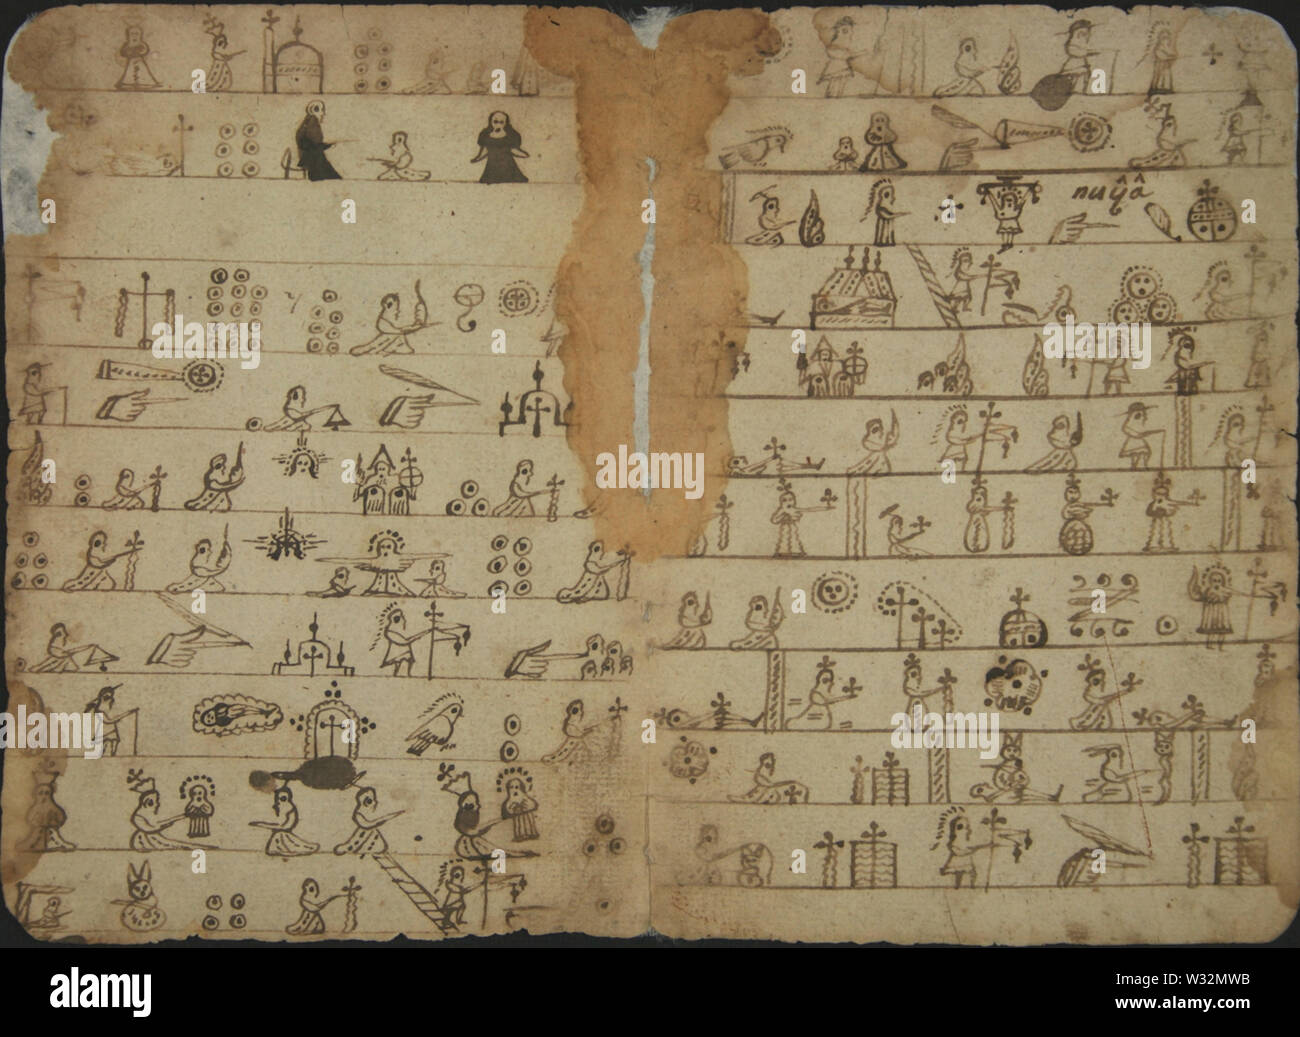 nuŷâ
a
alamy
alamy
Image ID: W32MWB
www.alamy.com